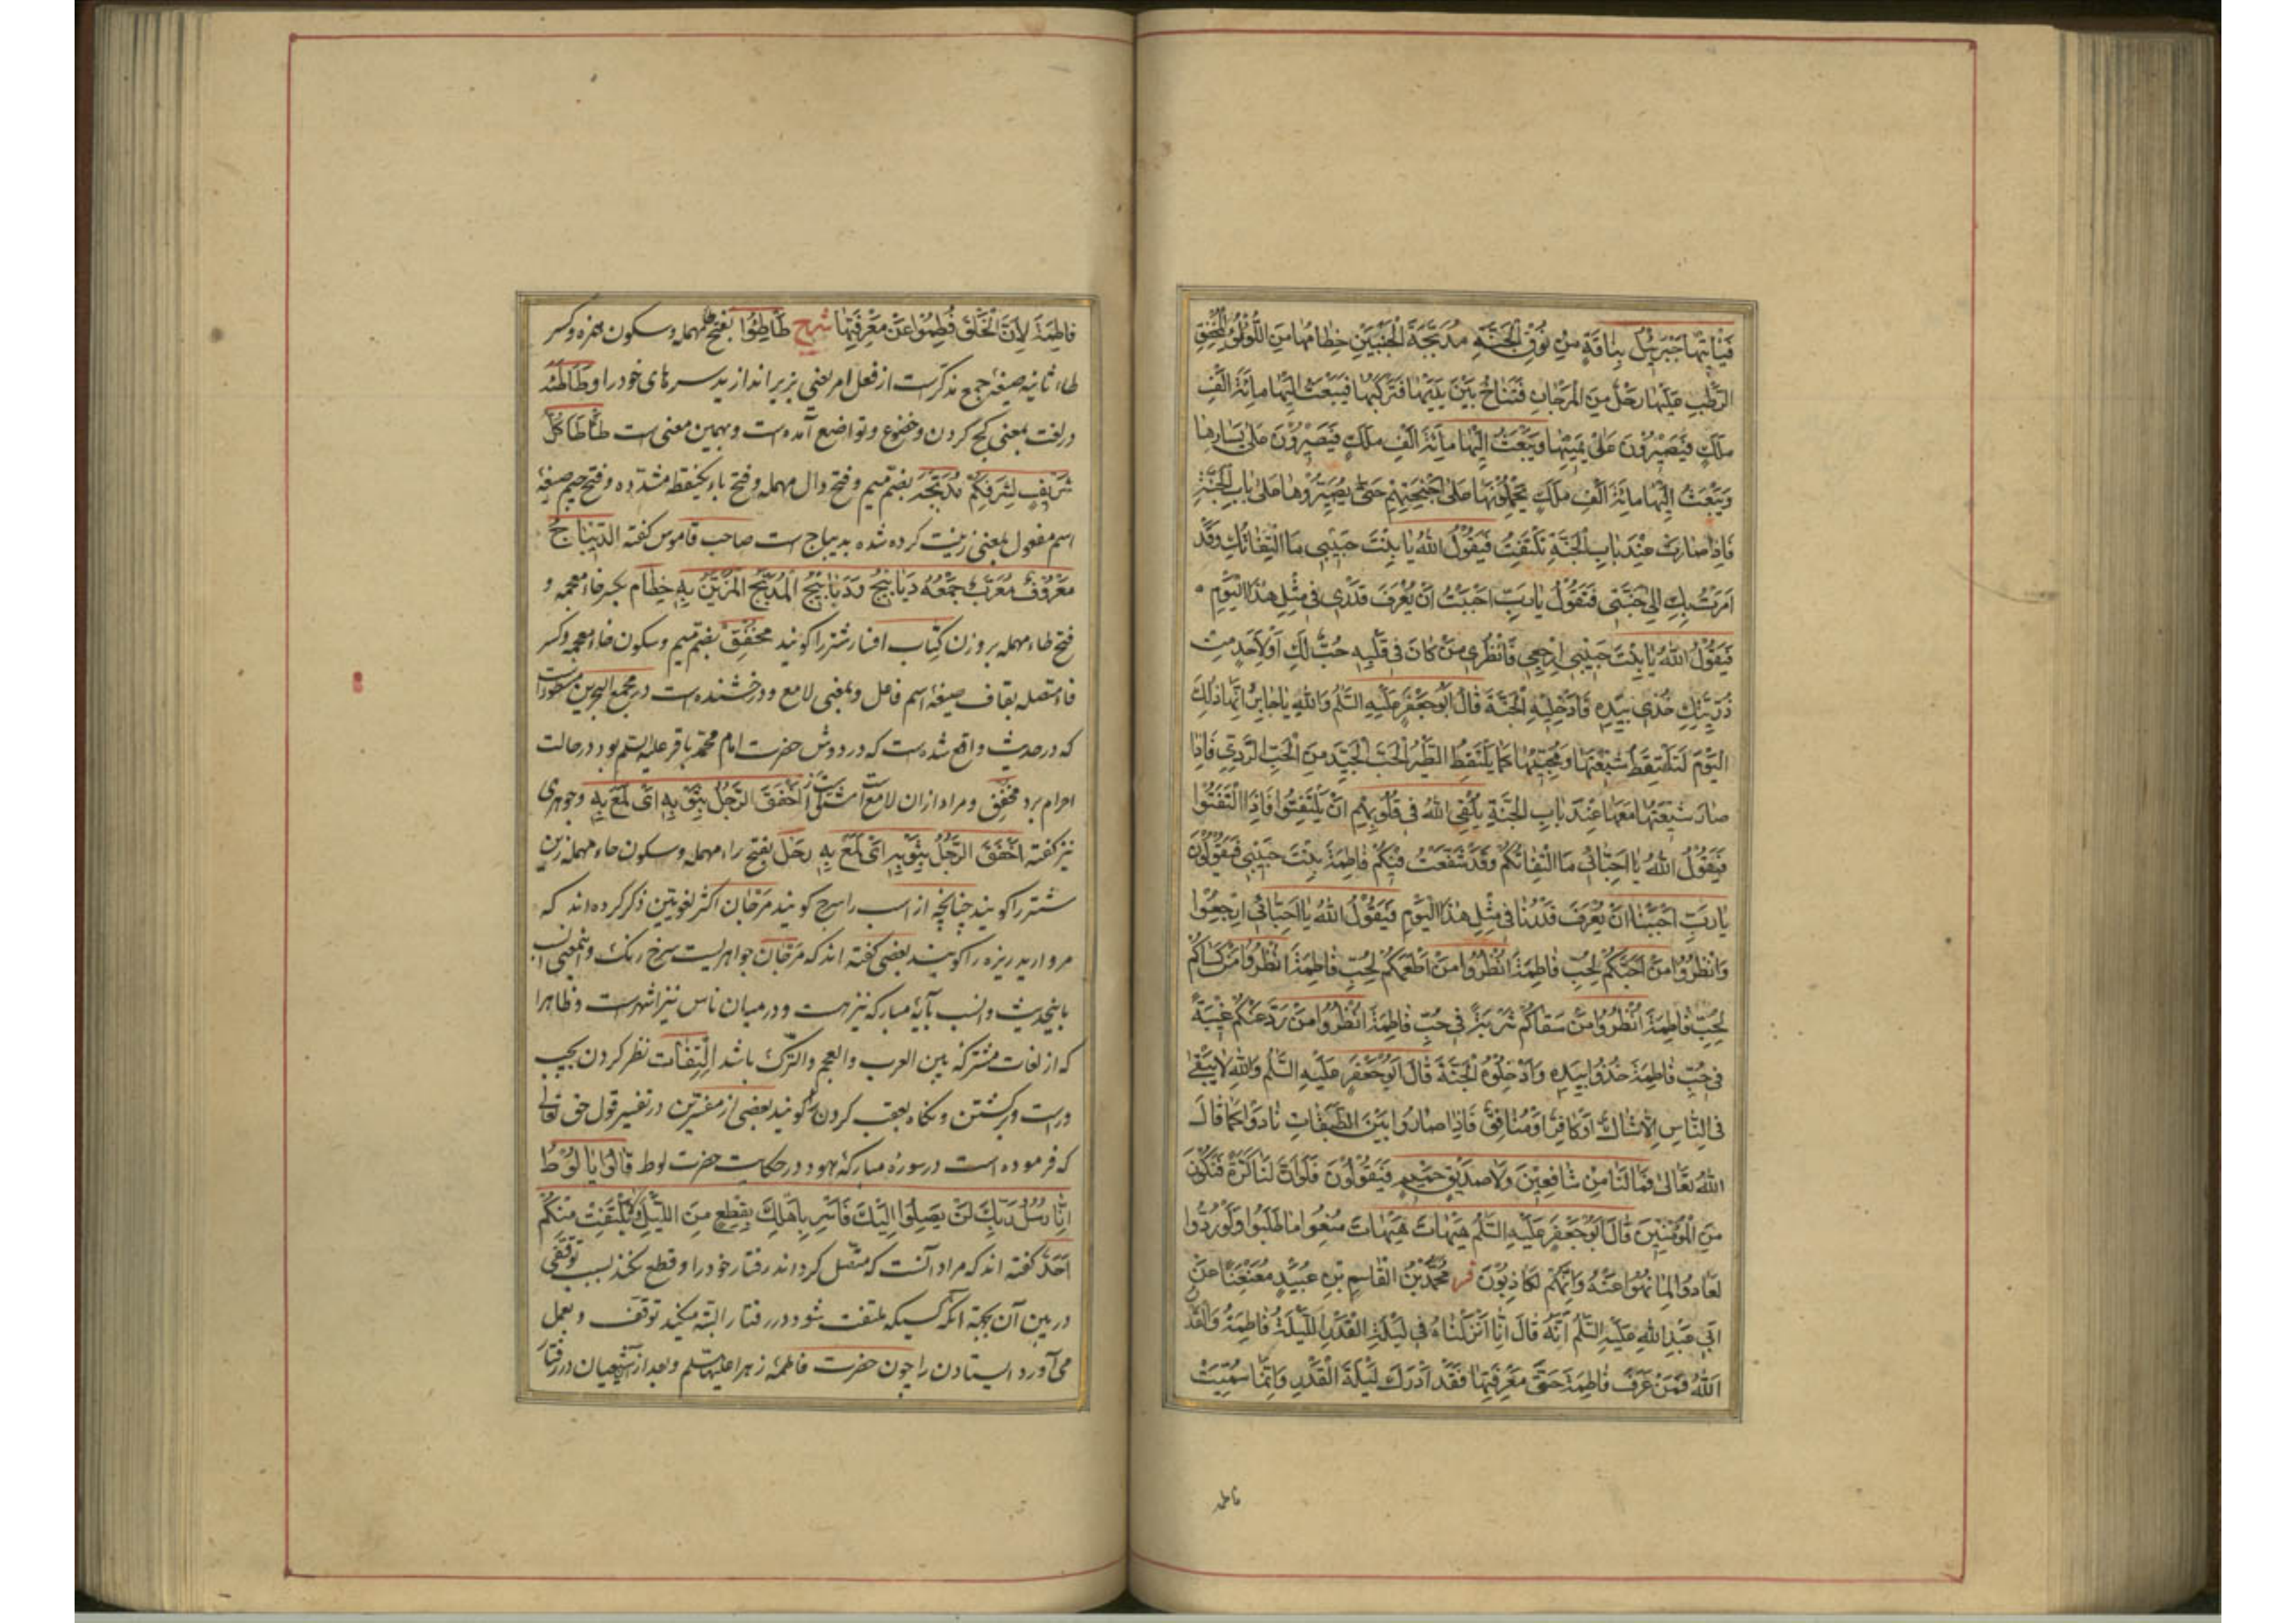 فَيَأْتِيهَا جَبْرَئِيلُ بِنَاقَةٍ مِنْ نُوقِ الْجَنَّةِ مُدَبَّجَةَ الْجَنْبَيْنِ خِطَامُهَا مِنَ اللُّؤْلُؤِ الْمُخْفِقِ
الرَّطْبِ عَلَيْهَا رَحْلٌ مِنَ الْمَرْجَانِ فَتُنَاخُ بَيْنَ يَدَيْهَا فَتَرْكَبُهَا فَيَبْعَثُ إِلَيْهَا مِائَةَ أَلْفِ
مَلَكٍ فَيَصِيرُونَ عَلَى يَمِينِهَا وَيَبْعَثُ إِلَيْهَا مِائَةَ أَلْفِ مَلَكٍ فَيَصِيرُونَ عَلَى يَسَارِهَا
وَيَبْعَثُ إِلَيْهَا مِائَةَ أَلْفِ مَلَكٍ يَحْمِلُونَهَا عَلَى أَجْنِحَتِهِمْ حَتَّى يُصَيِّرُوهَا عَلَى بَابِ الْجَنَّةِ
فَإِذَا صَارَتْ عِنْدَ بَابِ الْجَنَّةِ تَلْتَفِتُ فَيَقُولُ اللهُ يَا بِنْتَ حَبِيبِي مَا الْتِفَاتُكِ وَقَدْ
أَمَرْتُ بِكِ إِلَى جَنَّتِي فَتَقُولُ يَا رَبِّ أَحْبَبْتُ أَنْ يُعْرَفَ قَدْرِي فِي مِثْلِ هَذَا الْيَوْمِ
فَيَقُولُ اللهُ يَا بِنْتَ حَبِيبِي ارْجِعِي فَانْظُرِي مَنْ كَانَ فِي قَلْبِهِ حُبٌّ لَكِ أَوْ لِأَحَدٍ مِنْ
ذُرِّيَّتِكِ خُذِي بِيَدِهِ فَأَدْخِلِيهِ الْجَنَّةَ قَالَ أَبُو جَعْفَرٍ عَلَيْهِ السَّلَمُ وَاللهِ يَا جَابِرُ إِنَّهَا ذَلِكَ
الْيَوْمَ لَتَلْتَقِطُ شِيعَتَهَا وَمُحِبِّيهَا كَمَا يَلْتَقِطُ الطَّيْرُ الْحَبَّ الْجَيِّدَ مِنَ الْحَبِّ الرَّدِيِّ فَإِذَا
صَارَ شِيعَتُهَا مَعَهَا عِنْدَ بَابِ الْجَنَّةِ يُلْقِي اللهُ فِي قُلُوبِهِمْ أَنْ يَلْتَفِتُوا فَإِذَا الْتَفَتُوا
فَيَقُولُ اللهُ يَا أَحِبَّائِي مَا الْتِفَاتُكُمْ وَقَدْ شَفَّعْتُ فِيكُمْ فَاطِمَةَ بِنْتَ حَبِيبِي فَيَقُولُونَ
يَا رَبِّ أَحْبَبْنَا أَنْ يُعْرَفَ قَدْرُنَا فِي مِثْلِ هَذَا الْيَوْمِ فَيَقُولُ اللهُ يَا أَحِبَّائِي ارْجِعُوا
وَانْظُرُوا مَنْ أَحَبَّكُمْ لِحُبِّ فَاطِمَةَ انْظُرُوا مَنْ أَطْعَمَكُمْ لِحُبِّ فَاطِمَةَ انْظُرُوا مَنْ كَسَاكُمْ
لِحُبِّ فَاطِمَةَ انْظُرُوا مَنْ سَقَاكُمْ شَرْبَةً فِي حُبِّ فَاطِمَةَ انْظُرُوا مَنْ رَدَّ عَنْكُمْ غِيبَةً
فِي حُبِّ فَاطِمَةَ خُذُوا بِيَدِهِ وَأَدْخِلُوهُ الْجَنَّةَ قَالَ أَبُو جَعْفَرٍ عَلَيْهِ السَّلَمُ وَاللهِ لَا يَبْقَى
فِي النَّاسِ إِلَّا شَاكٌّ أَوْ كَافِرٌ أَوْ مُنَافِقٌ فَإِذَا صَارُوا بَيْنَ الطَّبَقَاتِ نَادَوْا كَمَا قَالَ
اللهُ تَعَالَى فَمَا لَنَا مِنْ شَافِعِينَ وَلَا صَدِيقٍ حَمِيمٍ فَيَقُولُونَ فَلَوْ أَنَّ لَنَا كَرَّةً فَنَكُونَ
مِنَ الْمُؤْمِنِينَ قَالَ أَبُو جَعْفَرٍ عَلَيْهِ السَّلَمُ هَيْهَاتَ هَيْهَاتَ مُنِعُوا مَا طَلَبُوا وَلَوْ رُدُّوا
لَعَادُوا لِمَا نُهُوا عَنْهُ وَإِنَّهُمْ لَكَاذِبُونَ فر مُحَمَّدُ بْنُ الْقَاسِمِ بْنِ عُبَيْدٍ مُعَنْعَنًا عَنْ
أَبِي عَبْدِ اللهِ عَلَيْهِ السَّلَمُ أَنَّهُ قَالَ إِنَّا أَنْزَلْنَاهُ فِي لَيْلَةِ الْقَدْرِ اللَّيْلَةُ فَاطِمَةُ وَالْقَدْرُ
اللهُ فَمَنْ عَرَفَ فَاطِمَةَ حَقَّ مَعْرِفَتِهَا فَقَدْ أَدْرَكَ لَيْلَةَ الْقَدْرِ وَإِنَّمَا سُمِّيَتْ
فاطمة
فَاطِمَةَ لِأَنَّ الْخَلْقَ فُطِمُوا عَنْ مَعْرِفَتِهَا شرح طَأْطِئُوا بفتح طاء مهمله وسكون همزه وكسر
طاء ثانيه صيغهٔ جمع مذكرست از فعل امر يعنى بزير اندازيد سرهاى خود را وطَأْطَئَة
در لغت بمعنى كج كردن وخضوع وتواضع آمده است وبهمين معنى است طَأْطَأَ كُلُّ
شَرِيفٍ لِشَرَفِكُمْ مُدَبَّجَة بضم ميم وفتح دال مهمله وفتح باء يكنقطه مشدّده وفتح جيم صيغهٔ
اسم مفعول بمعنى زينت كرده شده بديباج است صاحب قاموس گفته الدِّيبَاجُ
مَعْرُوفٌ مُعَرَّبٌ جَمْعُهُ دَيَابِيجُ وَدَبَابِيجُ الْمُدَبَّجُ الْمُزَيَّنُ بِهِ خِطَام بكسر خاء معجمه و
فتح طاء مهمله بر وزن كِتَاب افسار شتر را گويند مُخْفِق بضم ميم وسكون خاء معجمه وكسر
فاء متصله بقاف صيغهٔ اسم فاعل وبمعنى لامع ودرخشنده است در مجمع البحرين مسطور است
كه در حديث واقع شده است كه در دوش حضرت امام محمد باقر عليه السلم بود در حالت
احرام برد مُخْفِق ومراد از ان لامع است أَخْفَقَ الرَّجُلُ بِثَوْبِهِ أَيْ لَمَعَ بِهِ وجوهرى
نيز گفته أَخْفَقَ الرَّجُلُ بِثَوْبِهِ أَيْ لَمَعَ بِهِ رَحْل بفتح راء مهمله وسكون حاء مهمله زين
شتر را گويند چنانچه از اسب را سرج گويند مَرْجَان اكثر لغويين ذكر كرده اند كه
مرواريد ريزه را گويند بعضى گفته اند كه مَرْجَان جواهريست سرخ رنگ واينمعنى انسب
باينحديث وانسب بآيهٔ مباركه نيز هست ودر ميان ناس نيز اشهرست وظاهرا
كه از لغات مشتركه بين العرب والعجم والترك باشد اِلْتِفَات نظر كردن بچپ
وراست وبرگشتن ونگاه بعقب كردن را گويند بعضى از مفسرين در تفسير قول حق تعالى
كه فرموده است در سورهٔ مباركهٔ هود در حكايت حضرت لوط قَالُوا يَا لُوطُ
إِنَّا رُسُلُ رَبِّكَ لَنْ يَصِلُوا إِلَيْكَ فَأَسْرِ بِأَهْلِكَ بِقِطْعٍ مِنَ اللَّيْلِ وَلَا يَلْتَفِتْ مِنْكُمْ
أَحَدٌ گفته اند كه مراد آنست كه متصل كرداند رفتار خود را وقطع نكند بسبب توقفى
در بين آن بجهة آنكه كسيكه ملتفت شود در رفتار البته ميكند توقف وبعمل
مى آورد ايستادن را چون حضرت فاطمه زهرا عليها السلم وبعد از شيعيان در رفتار